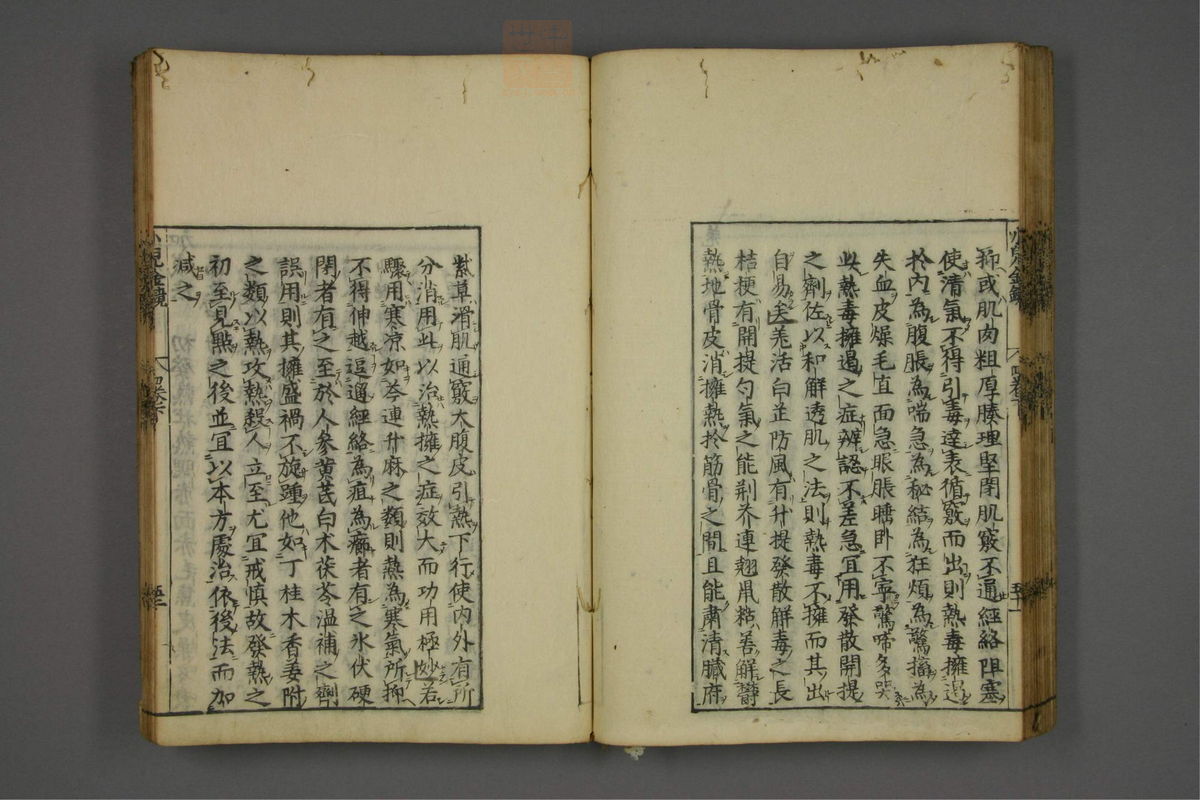 抑或肌肉粗厚腠理堅閉肌竅不通經絡阻塞
使清氣不得引毒達表循竅而出則熱毒擁遏
於内為腹脹為喘急為秘結為狂煩為驚搐為
失血皮燥毛直面急眼脹睡卧不寧驚啼多哭
此熱毒擁遏之症辨認不差急宜用發散開提
之劑佐以和解透肌之法則熱毒不擁而其出
自易矣羗活白芷防風有升提發散解毒之長
桔梗有開提勺氣之能荆芥連翹鼠粘善解欝
熱地骨皮消擁熱於筋骨之間且能肅清臓府
紫草滑肌通竅大腹皮引熱下行使内外有所
分消用此以治熱擁之症效大而功用極妙若
驟用寒凉如芩連升麻之類則熱為寒氣所抑
不得伸越逗遛經絡為疽為癤者有之氷伏硬
閉者有之至於人參黄芪白术茯苓温補之劑
誤用則其擁盛禍不旋踵他如丁桂木香姜附
之類以熱攻熱殺人立至尤宜戒慎故發熱之
初至見點之後並宜以本方處治依後法而加
减之
小兒金鏡